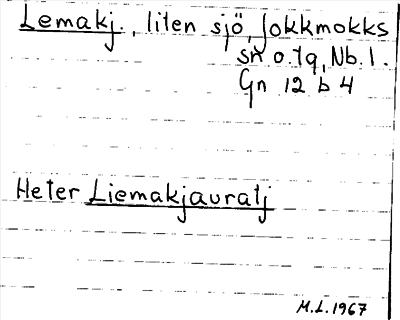 Lemakj., liten sjö, Jokkmokks
sn o. tq, Nb. l.
Gn 12 b 4
Heter Liemakjauratj
M.L. 1967